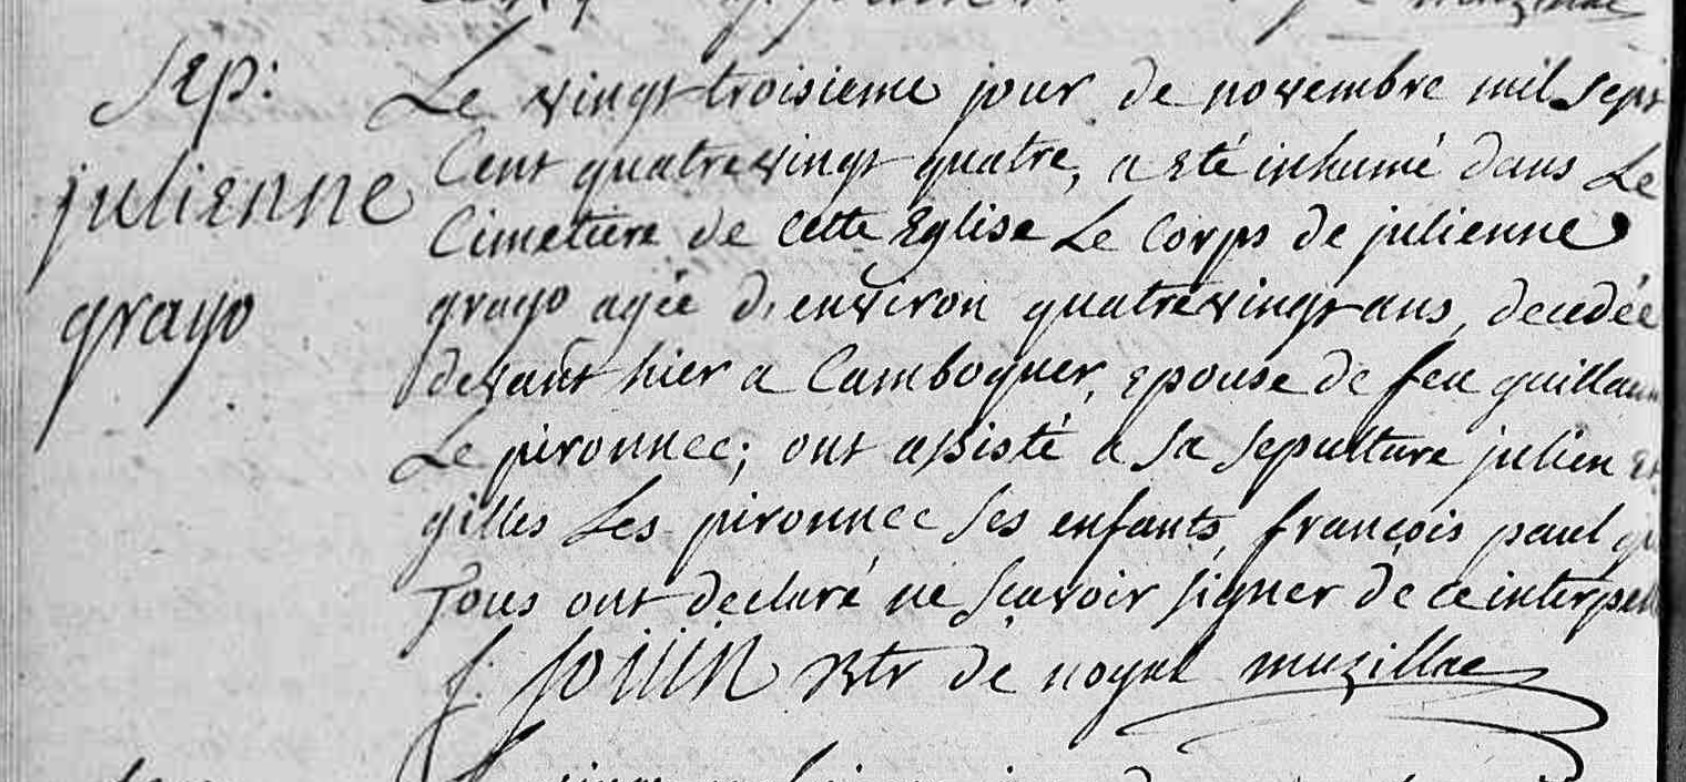 Sep:
julienne
grayo
Le vingt troisieme jour de novembre mil sept
Cent quatre vingt quatre, a eté inhumé dans Le
Cimetiere de cette Eglise Le Corps de julienne
grayo agée d'environ quatre vingt ans, decedée
devant hier a Camboguer, epouse de feu guillaum
Le pironnec; ont assisté a sa sepulture julien et
gilles Les pironnec ses enfants, françois paul qui
Tous ont declaré ne scavoir signer de ce interpellé
f. Rtr de noyal muzillac